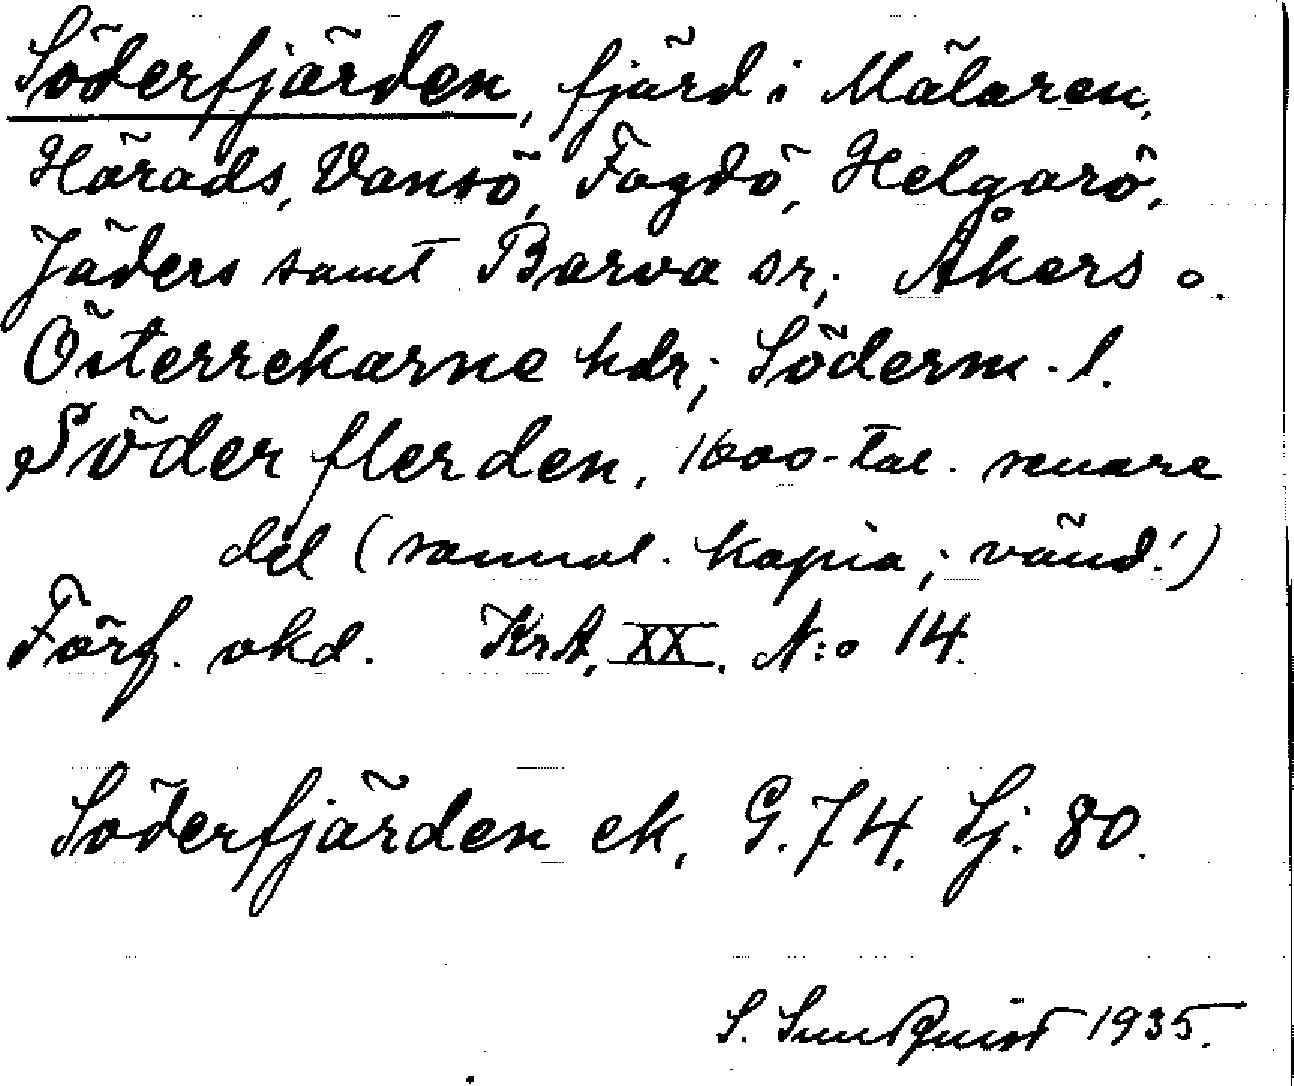 Söderfjärden, fjärd i Mälaren,
Härads, Vansö, Fogdö, Helgarö,
Jäders samt Barva sr; Åkers o.
Österrekarne hdr; Söderm. l.
Söder flerden, 1600-tal. senare
del (samol. kopia; vänd!)
Förf. okd. KrA, XX. N:o 14.
Söderfjärden ek, G. 74, Lj. 80.
S. Sundquist 1935.